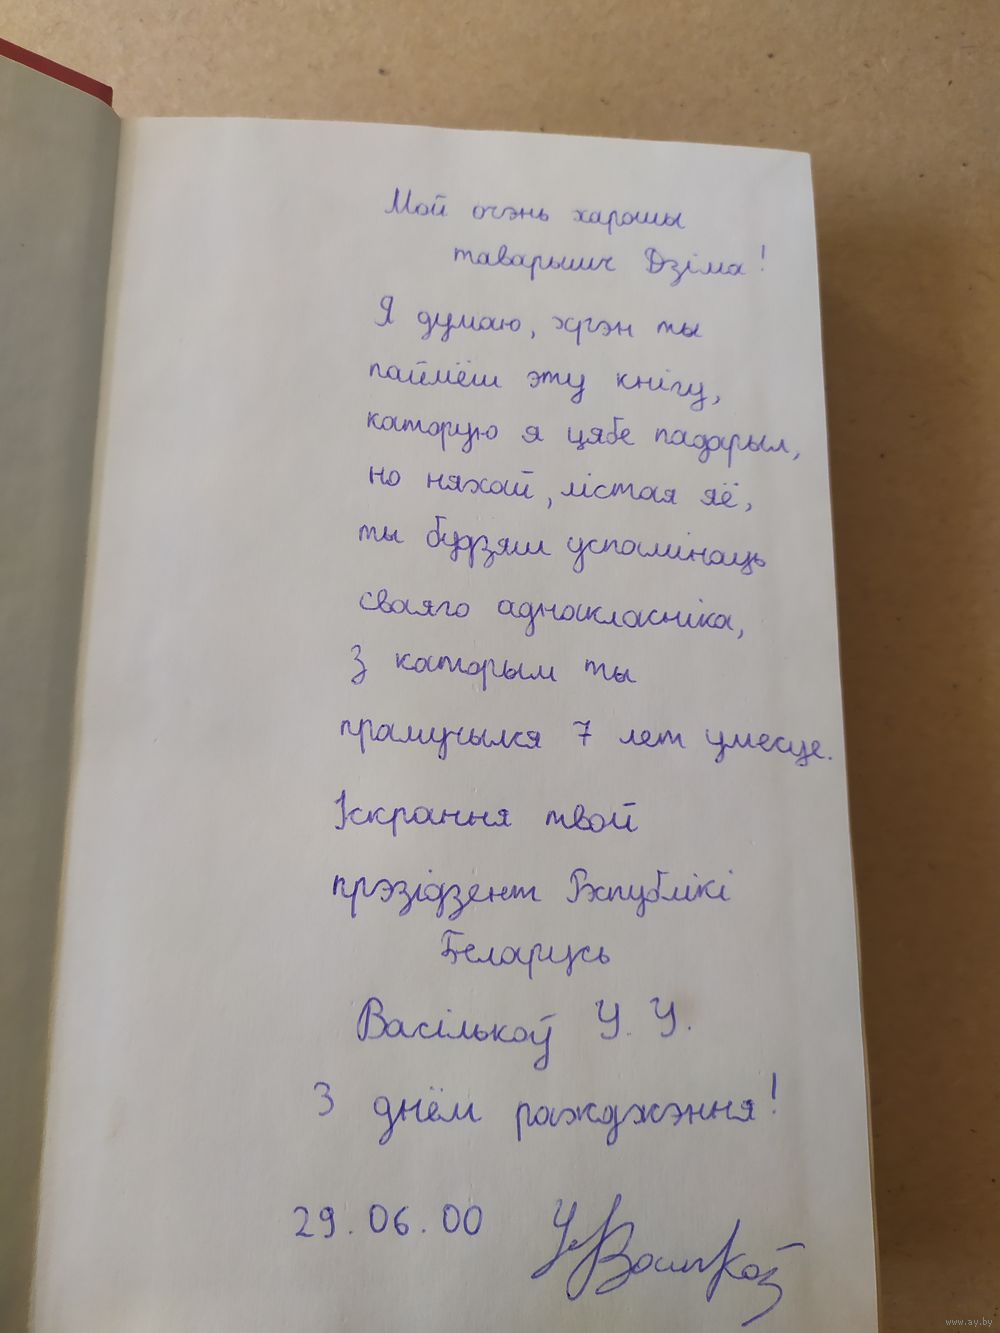 Мой очэнь харошы
таварышч Дзіма!
Я думаю, хрэн ты
паймёш эту кнігу,
каторую я цябе падарыл,
но няхай, лістая яё,
ты будзяш успамінаць
сваяго аднакласніка,
З каторым ты
прамучылся 7 лет умесце.
Іскрання твой
прэзідзент Рэспублікі
Беларусь
Васількоў У. У.
З днём ражджэння!
29.06.00 УВасількоў
www.ay.by